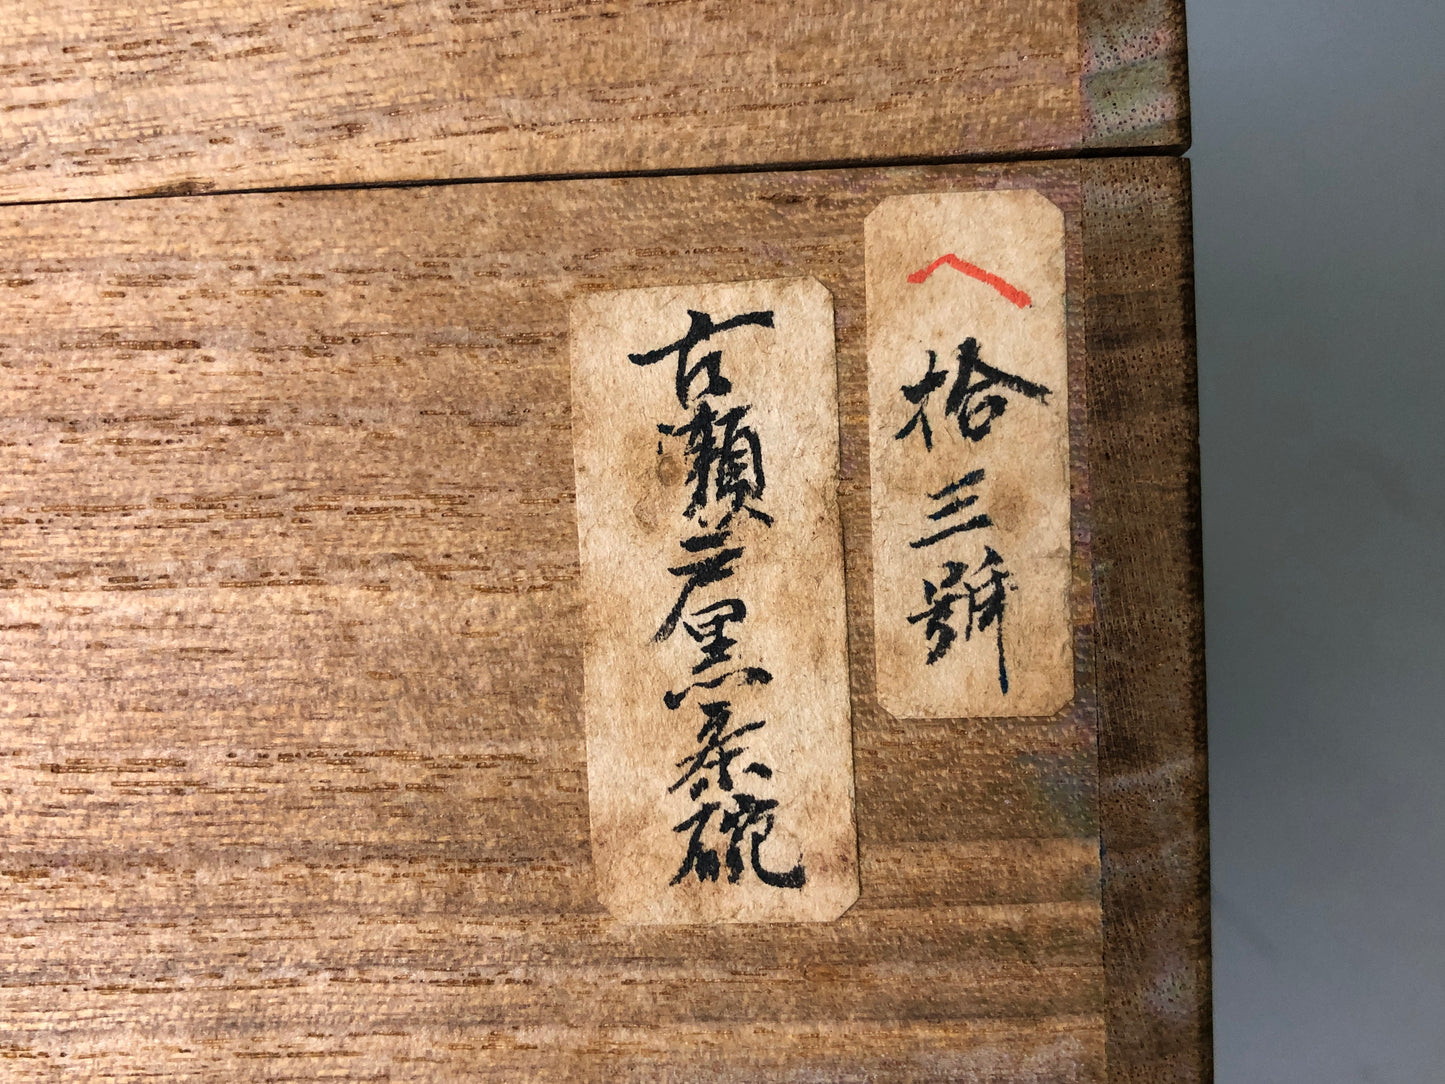 へ
拾三號
古瀬戸黒茶碗